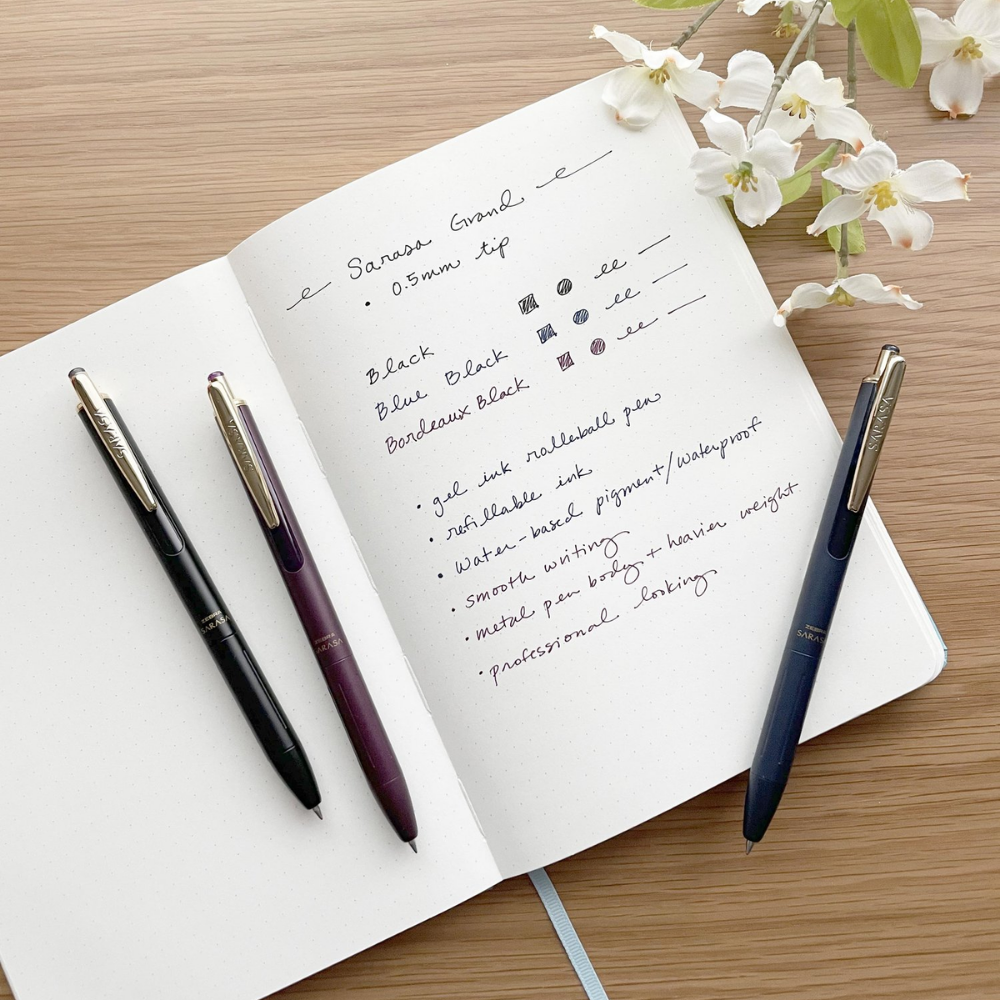 Sarasa Grand
• 0.5mm tip
Black
Blue Black
Bordeaux Black
• gel ink rollerball pen
• refillable ink
• water-based pigment/waterproof
• smooth writing
• metal pen body + heavier weight
• professional looking
SARASA
ZEBRA
SARASA
SARASA
ZEBRA
SARASA
SARASA
ZEBRA
SARASA